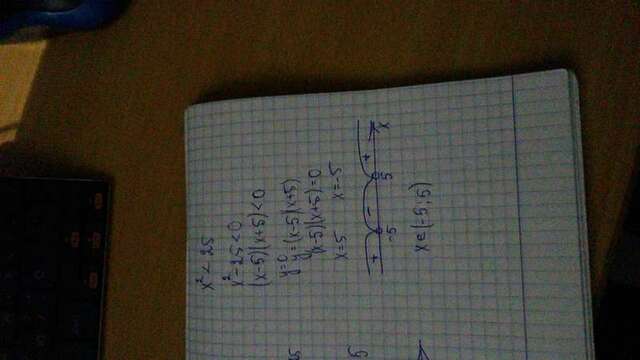 x² < 25
x²-25<0
(x-5)(x+5)<0
y=0
y=(x-5)(x+5)
(x-5)(x+5)=0
x=5 x=-5
+ - +
-5 5 x
x∈(-5;5)
5